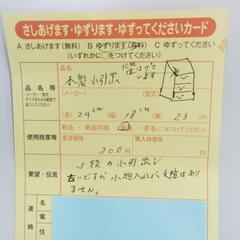 さしあげます・ゆずります・ゆずってくださいカード
A さしあげます(無料) B ゆずります(有料) C ゆずってください
(いずれかに○をつけてください)
品名等
木製小引出
(メーカー)
(型式)
(高さ) 24 cm (幅) 18 cm 23 cm
使用程度等
新品・新品同様
希望価格
購入時価格
300円
要望・伝言
3段の小引出し
古いですが小物入れに支障はあり
ません。
連絡
名
電
住